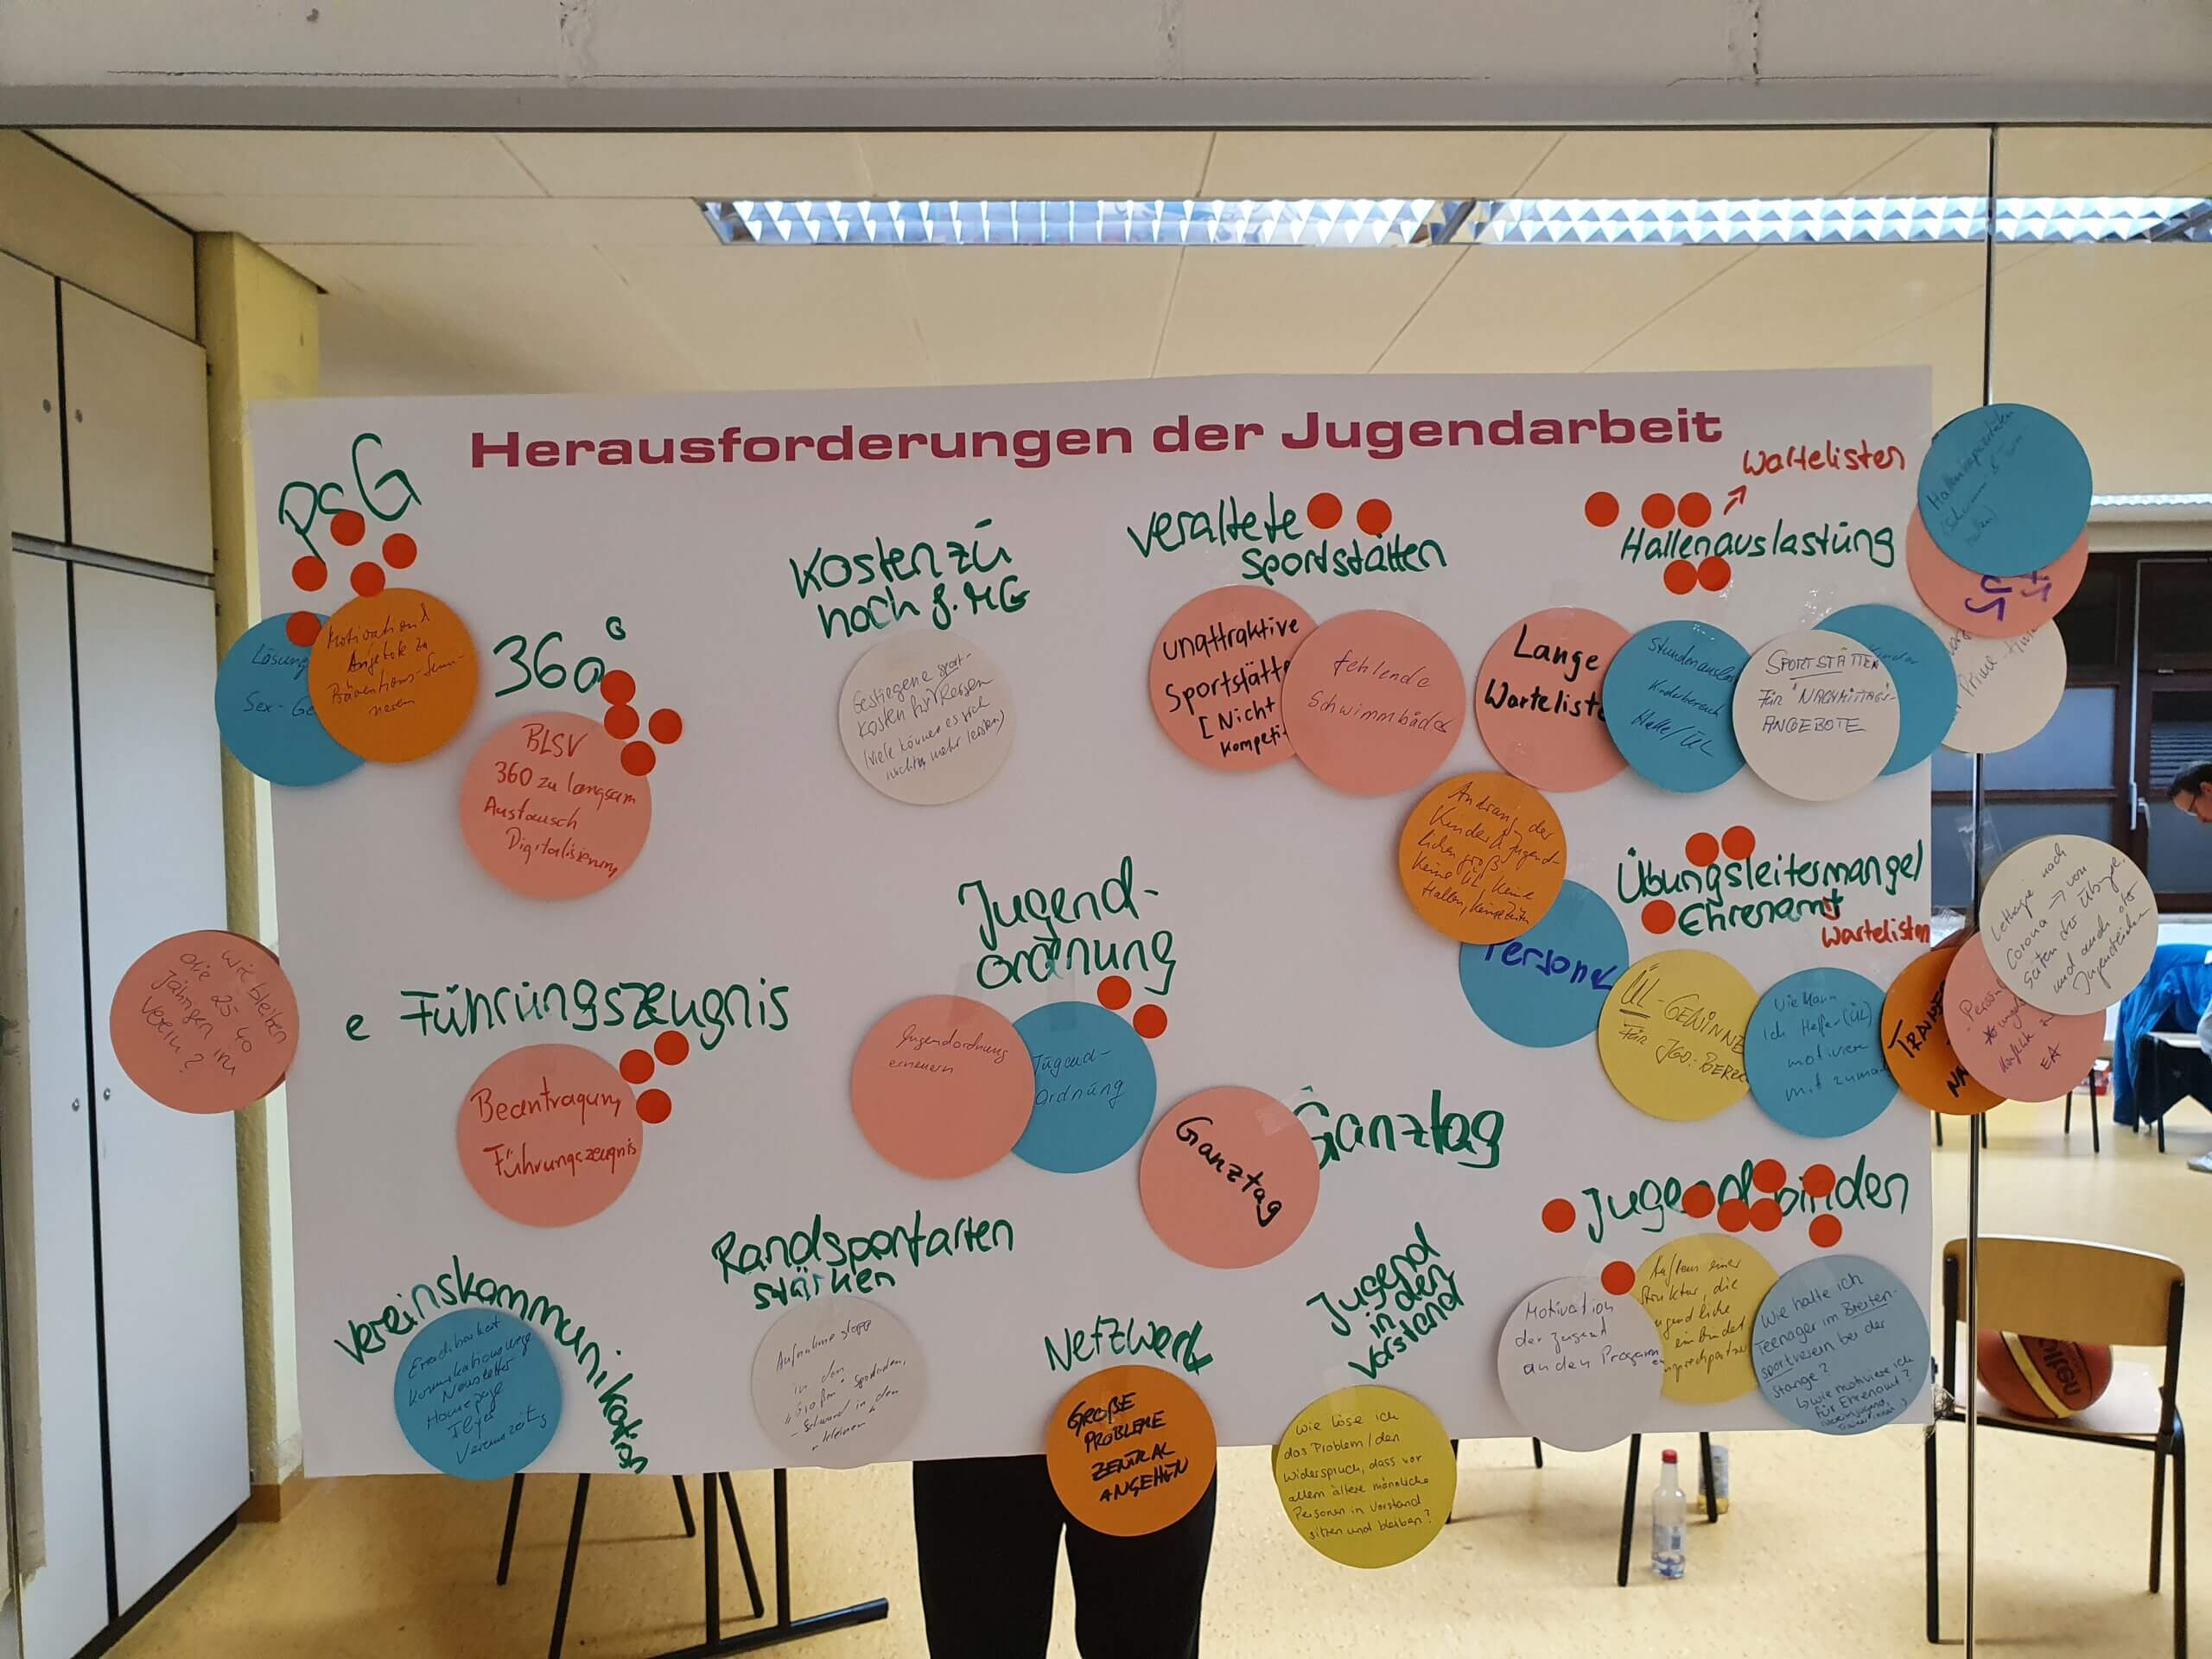 Herausforderungen der Jugendarbeit
PSG
Lösung
Sex-Ge
Motivation &
Angebote zu
Präventions-Semi-
naren
360°
BLSV
360 zu langsam
Austausch
Digitalisierung
Kosten zu
hoch f. MG
Gestiegene Sport-
kosten für Reisen
(viele können es sich
nicht mehr leisten)
veraltete
Sportstätten
unattraktive
Sportstätt
[Nicht
kompeti
fehlende
Schwimmbäder
Wartelisten
Hallenauslastung
Lange
Wartelist
Stundenausl
Kinderbereich
Halle/ÜL
SPORTSTÄTTEN
FÜR NACHMITTAGS-
ANGEBOTE
Kinder
Hallenkapazitäten
Prime
Andrang der
Kinder & Jugend-
lichen groß
Keine ÜL, Keine
Hallen, keine Zeiten
Personal
Übungsleitermangel
Ehrenamt
Wartelisten
ÜL-GEWINNE
FÜR JGD.-BEREI
Wie kann
ich Helfer (ÜL)
motivieren
mit zuma
TRAINER
NA
Person
EA
Lethargie nach
Corona → von
Seiten der Übungsl.
und auch der
Jugendlichen
Wie bleiben
die 25-40
Jährigen im
Verein?
e Führungszeugnis
Beantragung
Führungszeugnis
Jugend-
ordnung
Jugendordnung
erneuern
Jugend-
Ordnung
Ganztag
Ganztag
Jugend binden
Motivation
der Jugend
an den Program
Aufbau einer
Struktur, die
Jugendliche
einbindet
Ansprechpartner
Wie halte ich
Teenager im Breiten-
sportverein bei der
Stange?
↳ wie motiviere ich
für Ehrenamt?
Vereinskommunikation
Erreichbarkeit
Kommunikationswege
Newsletter
Homepage
Flyer
Vereinszeitg
Randsportarten
stärken
Aufnahmestopp
in den
"Großen" Sportarten,
- Schwund in den
"kleinen"
Netzwerk
GROßE
PROBLEME
ZENTRAL
ANGEHEN
Jugend
in den
Vorstand
Wie löse ich
das Problem / den
Widerspruch, dass vor
allem ältere männliche
Personen in Vorstand
sitzen und bleiben?